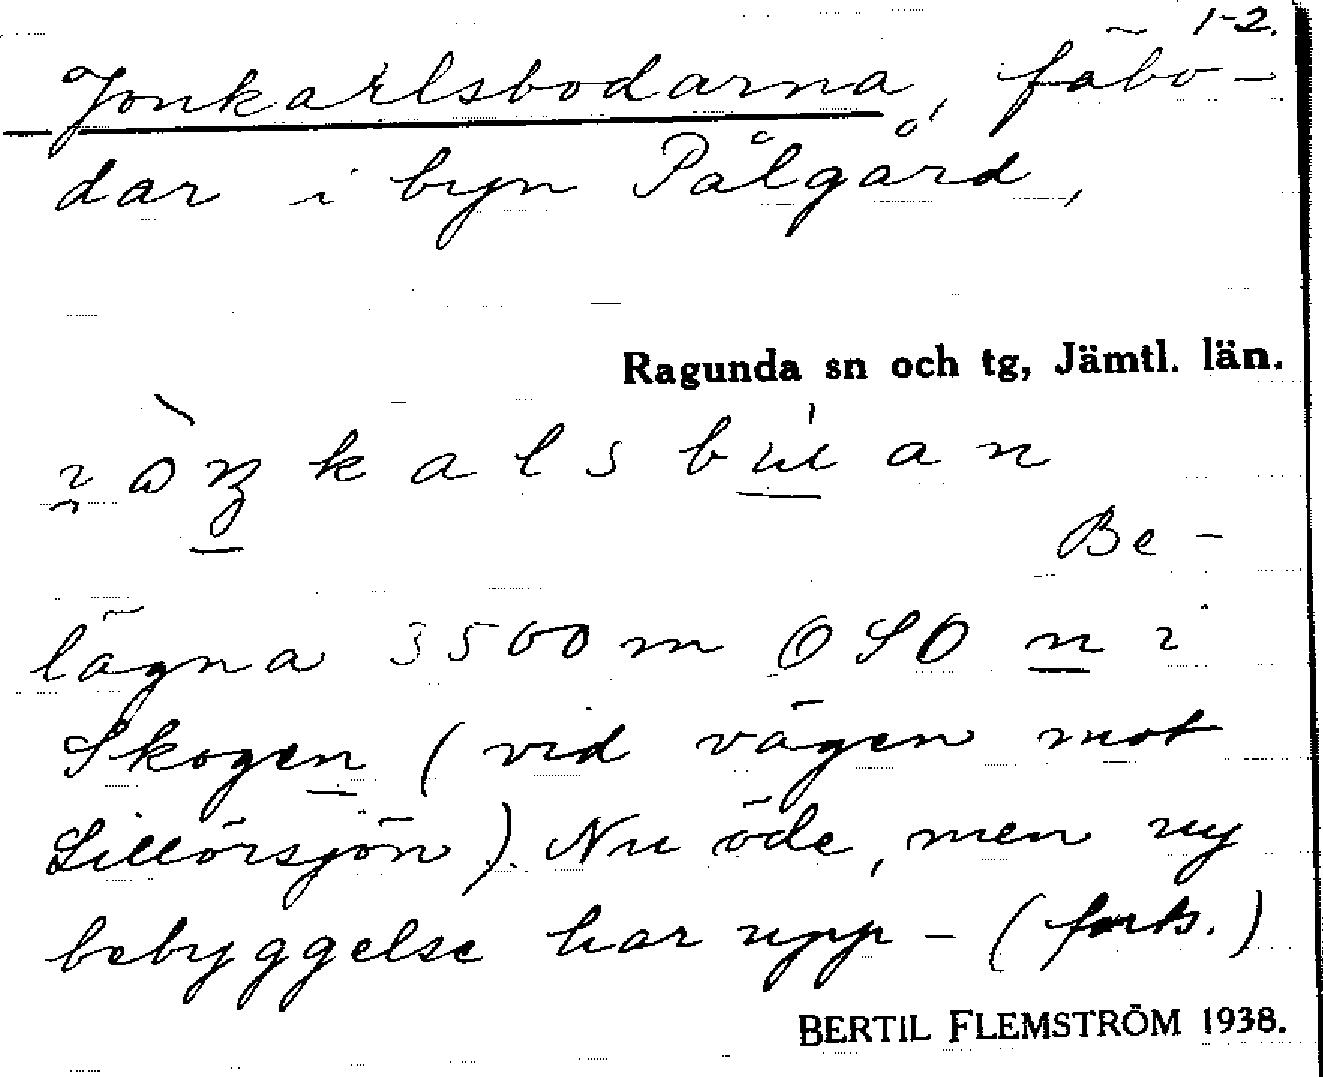 1-2.
Jonkarlsbodarna, fäbo-
dar i byn Pålgård,
Ragunda sn och tg, Jämtl. län.
Be-
lägna 3500 m OSO n i
Skogen (vid vägen mot
Lillörsjön). Nu öde, men ny
bebyggelse har upp- (forts.)
BERTIL FLEMSTRÖM 1938.